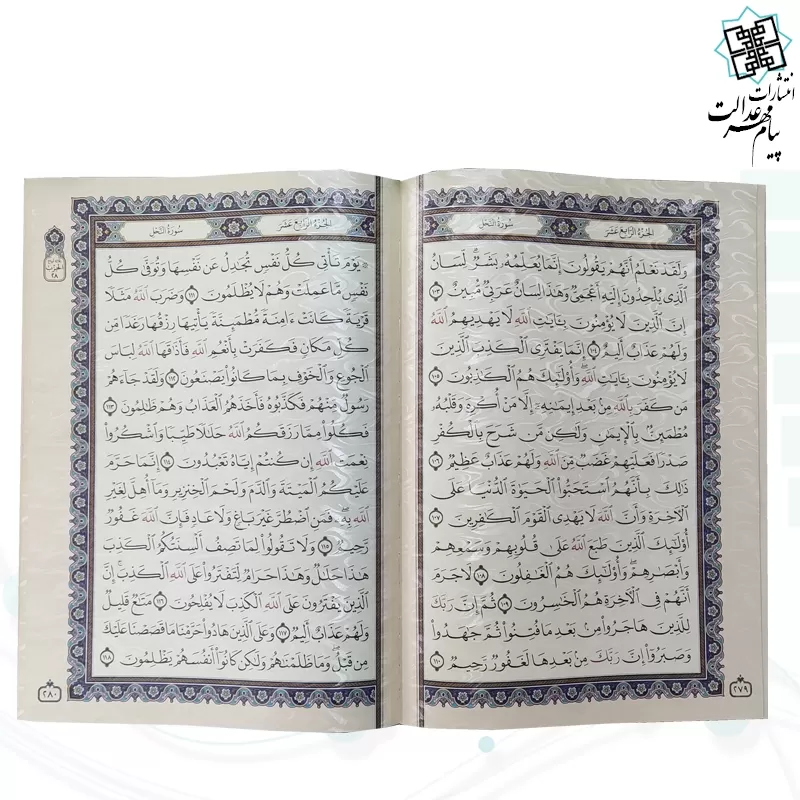 انتشارات
پیام مهر عدالت
الجُزْءُ الرَّابِعَ عَشَرَ
سُورَةُ النَّحْلِ
وَلَقَدْ نَعْلَمُ أَنَّهُمْ يَقُولُونَ إِنَّمَا يُعَلِّمُهُۥ بَشَرٌ ۗ لِّسَانُ
ٱلَّذِى يُلْحِدُونَ إِلَيْهِ أَعْجَمِىٌّ وَهَٰذَا لِسَانٌ عَرَبِىٌّ مُّبِينٌ ١٠٣
إِنَّ ٱلَّذِينَ لَا يُؤْمِنُونَ بِـَٔايَٰتِ ٱللَّهِ لَا يَهْدِيهِمُ ٱللَّهُ
وَلَهُمْ عَذَابٌ أَلِيمٌ ١٠٤ إِنَّمَا يَفْتَرِى ٱلْكَذِبَ ٱلَّذِينَ
لَا يُؤْمِنُونَ بِـَٔايَٰتِ ٱللَّهِ ۖ وَأُو۟لَٰٓئِكَ هُمُ ٱلْكَٰذِبُونَ ١٠٥
مَن كَفَرَ بِٱللَّهِ مِنۢ بَعْدِ إِيمَٰنِهِۦٓ إِلَّا مَنْ أُكْرِهَ وَقَلْبُهُۥ
مُطْمَئِنٌّۢ بِٱلْإِيمَٰنِ وَلَٰكِن مَّن شَرَحَ بِٱلْكُفْرِ
صَدْرًا فَعَلَيْهِمْ غَضَبٌ مِّنَ ٱللَّهِ وَلَهُمْ عَذَابٌ عَظِيمٌ ١٠٦
ذَٰلِكَ بِأَنَّهُمُ ٱسْتَحَبُّوا۟ ٱلْحَيَوٰةَ ٱلدُّنْيَا عَلَى
ٱلْءَاخِرَةِ وَأَنَّ ٱللَّهَ لَا يَهْدِى ٱلْقَوْمَ ٱلْكَٰفِرِينَ ١٠٧
أُو۟لَٰٓئِكَ ٱلَّذِينَ طَبَعَ ٱللَّهُ عَلَىٰ قُلُوبِهِمْ وَسَمْعِهِمْ
وَأَبْصَٰرِهِمْ ۖ وَأُو۟لَٰٓئِكَ هُمُ ٱلْغَٰفِلُونَ ١٠٨ لَا جَرَمَ
أَنَّهُمْ فِى ٱلْءَاخِرَةِ هُمُ ٱلْخَٰسِرُونَ ١٠٩ ثُمَّ إِنَّ رَبَّكَ
لِلَّذِينَ هَاجَرُوا۟ مِنۢ بَعْدِ مَا فُتِنُوا۟ ثُمَّ جَٰهَدُوا۟
وَصَبَرُوٓا۟ إِنَّ رَبَّكَ مِنۢ بَعْدِهَا لَغَفُورٌ رَّحِيمٌ ١١٠
٢٧٩
الجُزْءُ الرَّابِعَ عَشَرَ
سُورَةُ النَّحْلِ
۞ يَوْمَ تَأْتِى كُلُّ نَفْسٍ تُجَٰدِلُ عَن نَّفْسِهَا وَتُوَفَّىٰ كُلُّ
نَفْسٍ مَّا عَمِلَتْ وَهُمْ لَا يُظْلَمُونَ ١١١ وَضَرَبَ ٱللَّهُ مَثَلًا
قَرْيَةً كَانَتْ ءَامِنَةً مُّطْمَئِنَّةً يَأْتِيهَا رِزْقُهَا رَغَدًا مِّن
كُلِّ مَكَانٍ فَكَفَرَتْ بِأَنْعُمِ ٱللَّهِ فَأَذَٰقَهَا ٱللَّهُ لِبَاسَ
ٱلْجُوعِ وَٱلْخَوْفِ بِمَا كَانُوا۟ يَصْنَعُونَ ١١٢ وَلَقَدْ جَآءَهُمْ
رَسُولٌ مِّنْهُمْ فَكَذَّبُوهُ فَأَخَذَهُمُ ٱلْعَذَابُ وَهُمْ ظَٰلِمُونَ ١١٣
فَكُلُوا۟ مِمَّا رَزَقَكُمُ ٱللَّهُ حَلَٰلًا طَيِّبًا وَٱشْكُرُوا۟
نِعْمَتَ ٱللَّهِ إِن كُنتُمْ إِيَّاهُ تَعْبُدُونَ ١١٤ إِنَّمَا حَرَّمَ
عَلَيْكُمُ ٱلْمَيْتَةَ وَٱلدَّمَ وَلَحْمَ ٱلْخِنزِيرِ وَمَآ أُهِلَّ لِغَيْرِ
ٱللَّهِ بِهِۦ ۖ فَمَنِ ٱضْطُرَّ غَيْرَ بَاغٍ وَلَا عَادٍ فَإِنَّ ٱللَّهَ غَفُورٌ
رَّحِيمٌ ١١٥ وَلَا تَقُولُوا۟ لِمَا تَصِفُ أَلْسِنَتُكُمُ ٱلْكَذِبَ
هَٰذَا حَلَٰلٌ وَهَٰذَا حَرَامٌ لِّتَفْتَرُوا۟ عَلَى ٱللَّهِ ٱلْكَذِبَ ۚ إِنَّ
ٱلَّذِينَ يَفْتَرُونَ عَلَى ٱللَّهِ ٱلْكَذِبَ لَا يُفْلِحُونَ ١١٦ مَتَٰعٌ قَلِيلٌ
وَلَهُمْ عَذَابٌ أَلِيمٌ ١١٧ وَعَلَى ٱلَّذِينَ هَادُوا۟ حَرَّمْنَا مَا قَصَصْنَا عَلَيْكَ
مِن قَبْلُ ۖ وَمَا ظَلَمْنَٰهُمْ وَلَٰكِن كَانُوٓا۟ أَنفُسَهُمْ يَظْلِمُونَ ١١٨
٢٨٠